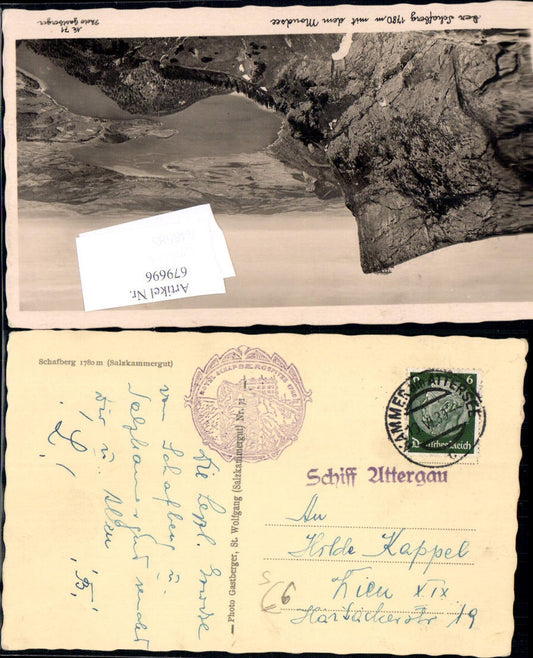 Der Schafberg 1780 m mit dem Mondsee
Nr. 71
Photo Gastberger
Artikel Nr.
679696
Schafberg 1780 m (Salzkammergut)
— Photo Gastberger, St. Wolfgang (Salzkammergut) Nr. 71 —
Die herzl. Grüße
vom Schafberg u.
Salzkammergut sendet
Dir u. Allen
KAMMER AM ATTERSEE
6
Deutsches Reich
Schiff Attergau
An
Hilde Kappel
Wien XIX
Hartäckerstr 19